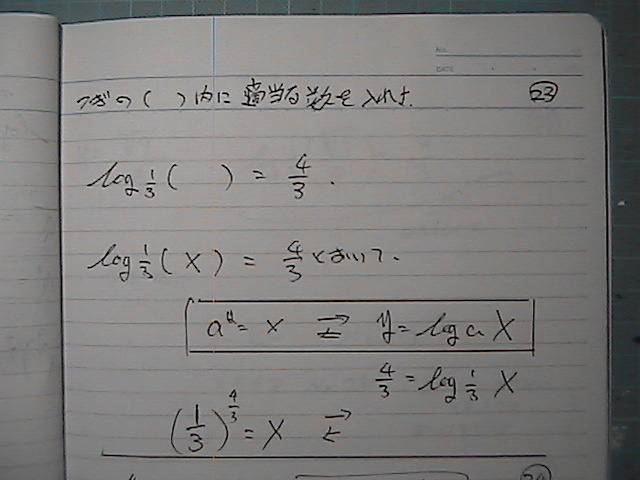 NO.
DATE
つぎの( )内に適当な数を入れよ. ㉓
log 1/3 ( ) = 4/3.
log 1/3 (X) = 4/3 とおいて.
a^y = x ⇄ y = log a X
4/3 = log 1/3 X
(1/3)^4/3 = X ⇄